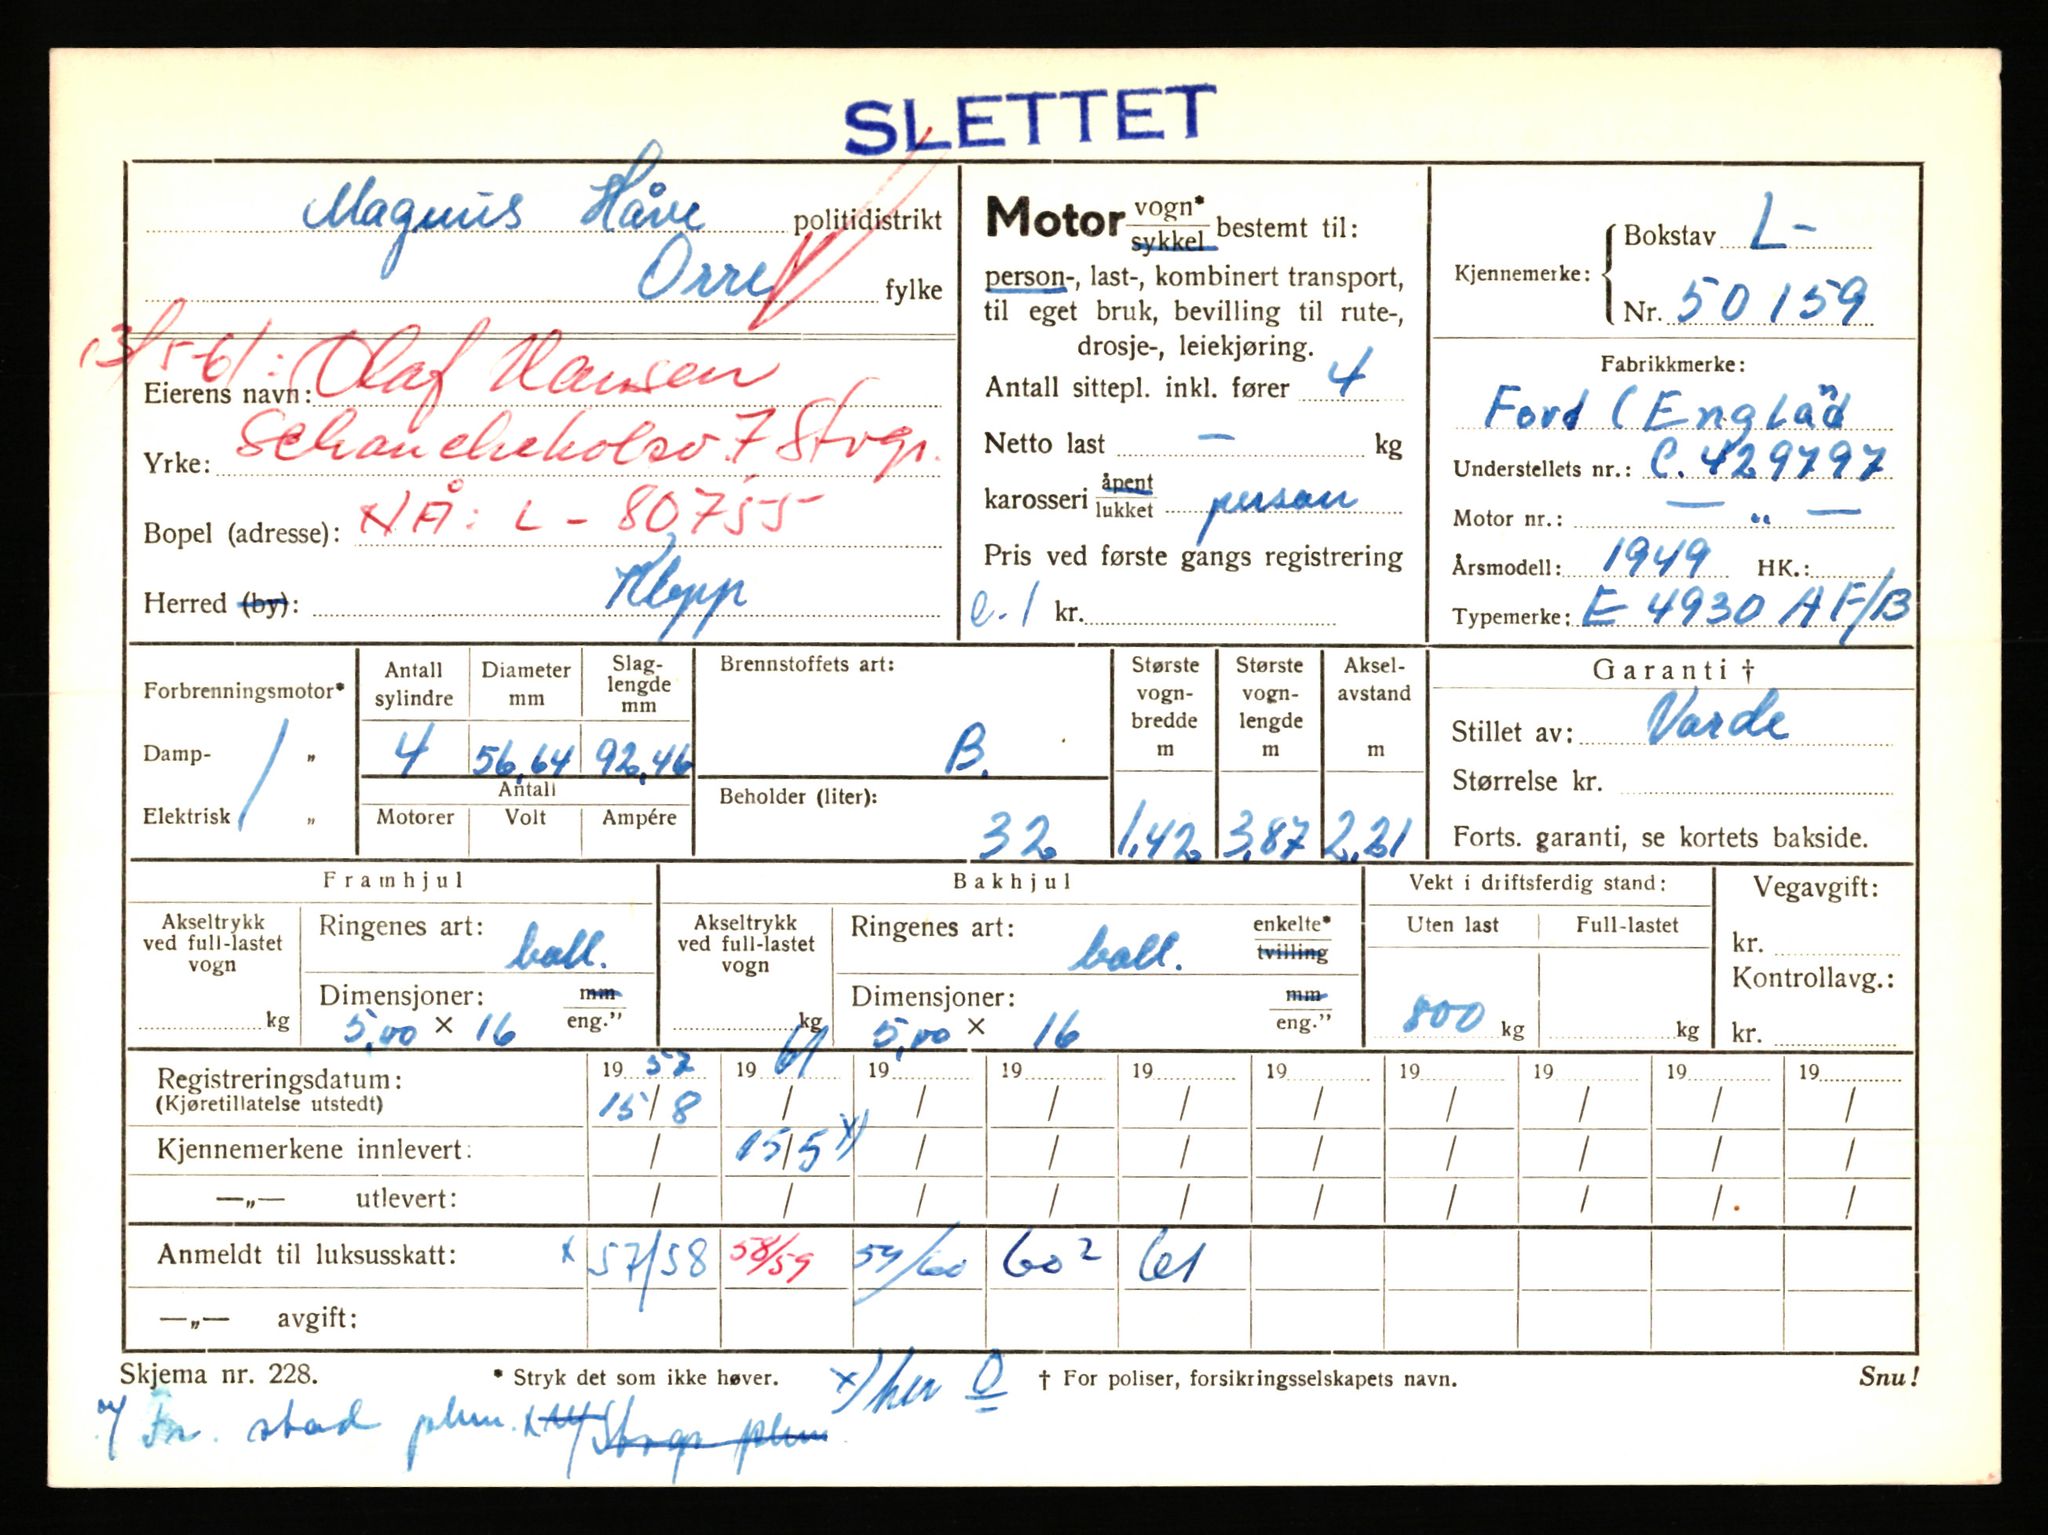 SLETTET
Magnus Håve politidistrikt
Orre fylke
13/5-61: Olaf Hansen
Eierens navn:
Yrke: 7 Stvgr.
Bopel (adresse): NÅ: L - 80755
Herred (by): Klepp
Motor vogn* sykkel bestemt til:
person-, last-, kombinert transport,
til eget bruk, bevilling til rute-,
drosje-, leiekjøring.
Antall sittepl. inkl. fører 4
Netto last — kg
karosseri åpent lukket person
Pris ved første gangs registrering
e.l kr.
Kjennemerke: Bokstav L-
Nr. 50159
Fabrikkmerke:
Ford (England
Understellets nr.: C. 429797
Motor nr.: — „ —
Årsmodell: 1949 HK.:
Typemerke: E 4930 A F/B
Forbrenningsmotor*
Damp- „
Elektrisk „
Antall sylindre Diameter mm Slag-lengde mm
4 56,64 92,46
Antall
Motorer Volt Ampére
Brennstoffets art:
B.
Beholder (liter):
32
Største vogn-bredde m
1,42
Største vogn-lengde m
3,87
Aksel-avstand m
2,21
Garanti †
Stillet av: Varde
Størrelse kr.
Forts. garanti, se kortets bakside.
Framhjul
Akseltrykk ved full-lastet vogn
kg
Ringenes art: ball.
Dimensjoner: mm eng."
5,00 × 16
Bakhjul
Akseltrykk ved full-lastet vogn
kg
Ringenes art: ball. enkelte* tvilling
Dimensjoner: mm eng."
5,00 × 16
Vekt i driftsferdig stand:
Uten last Full-lastet
800 kg kg
Vegavgift:
kr.
Kontrollavg.:
kr.
Registreringsdatum: 19 57 19 61 19 19 19 19 19 19 19 19
(Kjøretillatelse utstedt) 15/8 / / / / / / / / /
Kjennemerkene innlevert: / 15/5 x) / / / / / / / /
—„— utlevert: / / / / / / / / / /
Anmeldt til luksusskatt: x 57/58 58/59 59/60 60² 61
—„— avgift:
Skjema nr. 228. * Stryk det som ikke høver. x) her 0 † For poliser, forsikringsselskapets navn. Snu!
stad phm. Stvgr phm